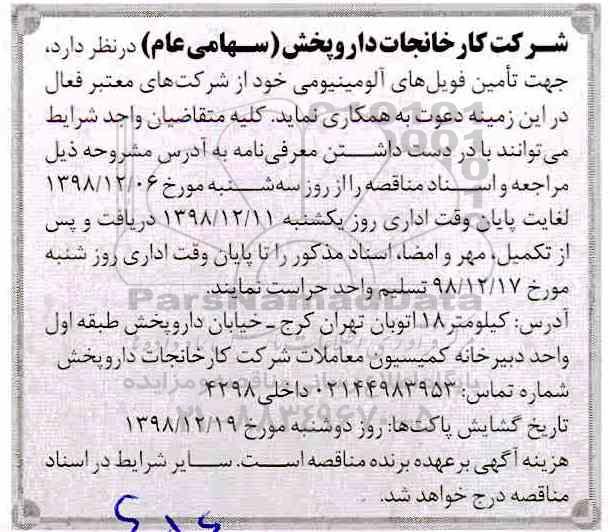 شرکت کارخانجات داروپخش (سهامی عام) درنظر دارد،
جهت تأمین فویل‌های آلومینیومی خود از شرکت‌های معتبر فعال
در این زمینه دعوت به همکاری نماید. کلیه متقاضیان واجد شرایط
می‌توانند با در دست داشتن معرفی‌نامه به آدرس مشروحه ذیل
مراجعه و اسناد مناقصه را از روز سه‌شنبه مورخ ۱۳۹۸/۱۲/۰۶
لغایت پایان وقت اداری روز یکشنبه ۱۳۹۸/۱۲/۱۱ دریافت و پس
از تکمیل، مهر و امضا، اسناد مذکور را تا پایان وقت اداری روز شنبه
مورخ ۹۸/۱۲/۱۷ تسلیم واحد حراست نمایند.
ParsNamadData
آدرس: کیلومتر ۱۸ اتوبان تهران کرج ـ خیابان داروپخش طبقه اول
واحد دبیرخانه کمیسیون معاملات شرکت کارخانجات داروپخش
شماره تماس: ۰۲۱۴۴۹۸۳۹۵۳ داخلی ۴۲۹۸
تاریخ گشایش پاکت‌ها: روز دوشنبه مورخ ۱۳۹۸/۱۲/۱۹
هزینه آگهی بر عهده برنده مناقصه است. سایر شرایط در اسناد
مناقصه درج خواهد شد.